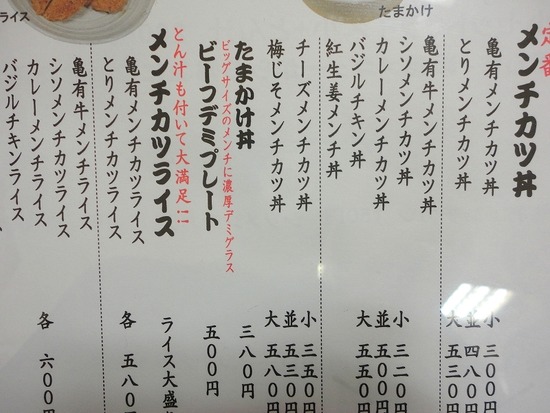 たまかけ
定番
メンチカツ丼
亀有メンチカツ丼
とりメンチカツ丼
小 三〇〇
並 四八〇
大 五三〇
亀有牛メンチカツ丼
シソメンチカツ丼
カレーメンチカツ丼
バジルチキン丼
紅生姜メンチ丼
小 三二〇
並 五〇〇
大 五五〇
チーズメンチカツ丼
梅じそメンチカツ丼
小 三五〇
並 五三〇
大 五八〇
たまかけ丼
三八〇円
ビッグサイズのメンチに濃厚デミグラス
ビーフデミプレート
五〇〇円
とん汁も付いて大満足!!
メンチカツライス
ライス大盛
亀有メンチカツライス
とりメンチカツライス
各 五八〇円
亀有牛メンチライス
シソメンチカツライス
カレーメンチライス
バジルチキンライス
各 六〇〇円
ライス